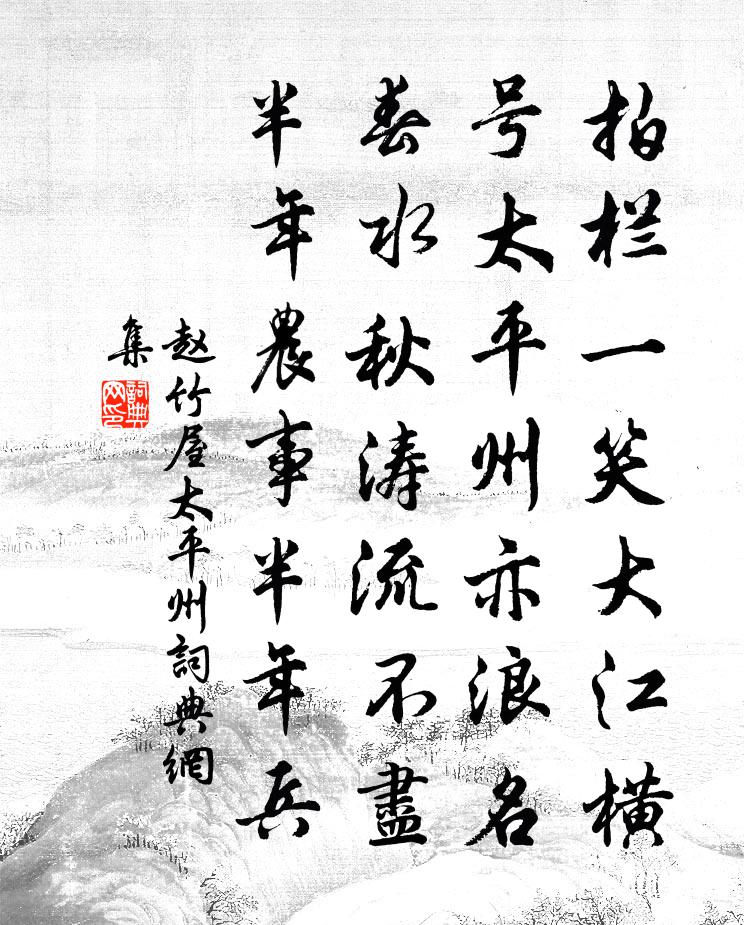 拍栏一笑大江横
号太平州亦浪名
春水秋涛流不盡
半年農事半年兵
赵竹屋太平州詞典網
集
詞典
网印